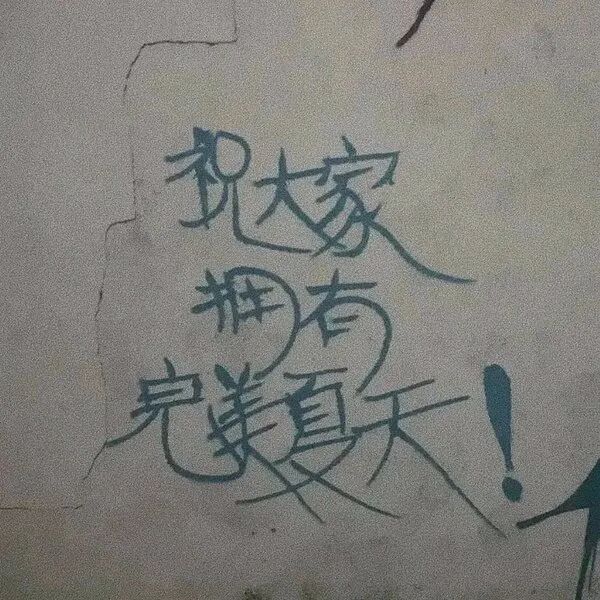 祝大家
拥有
完美夏天！